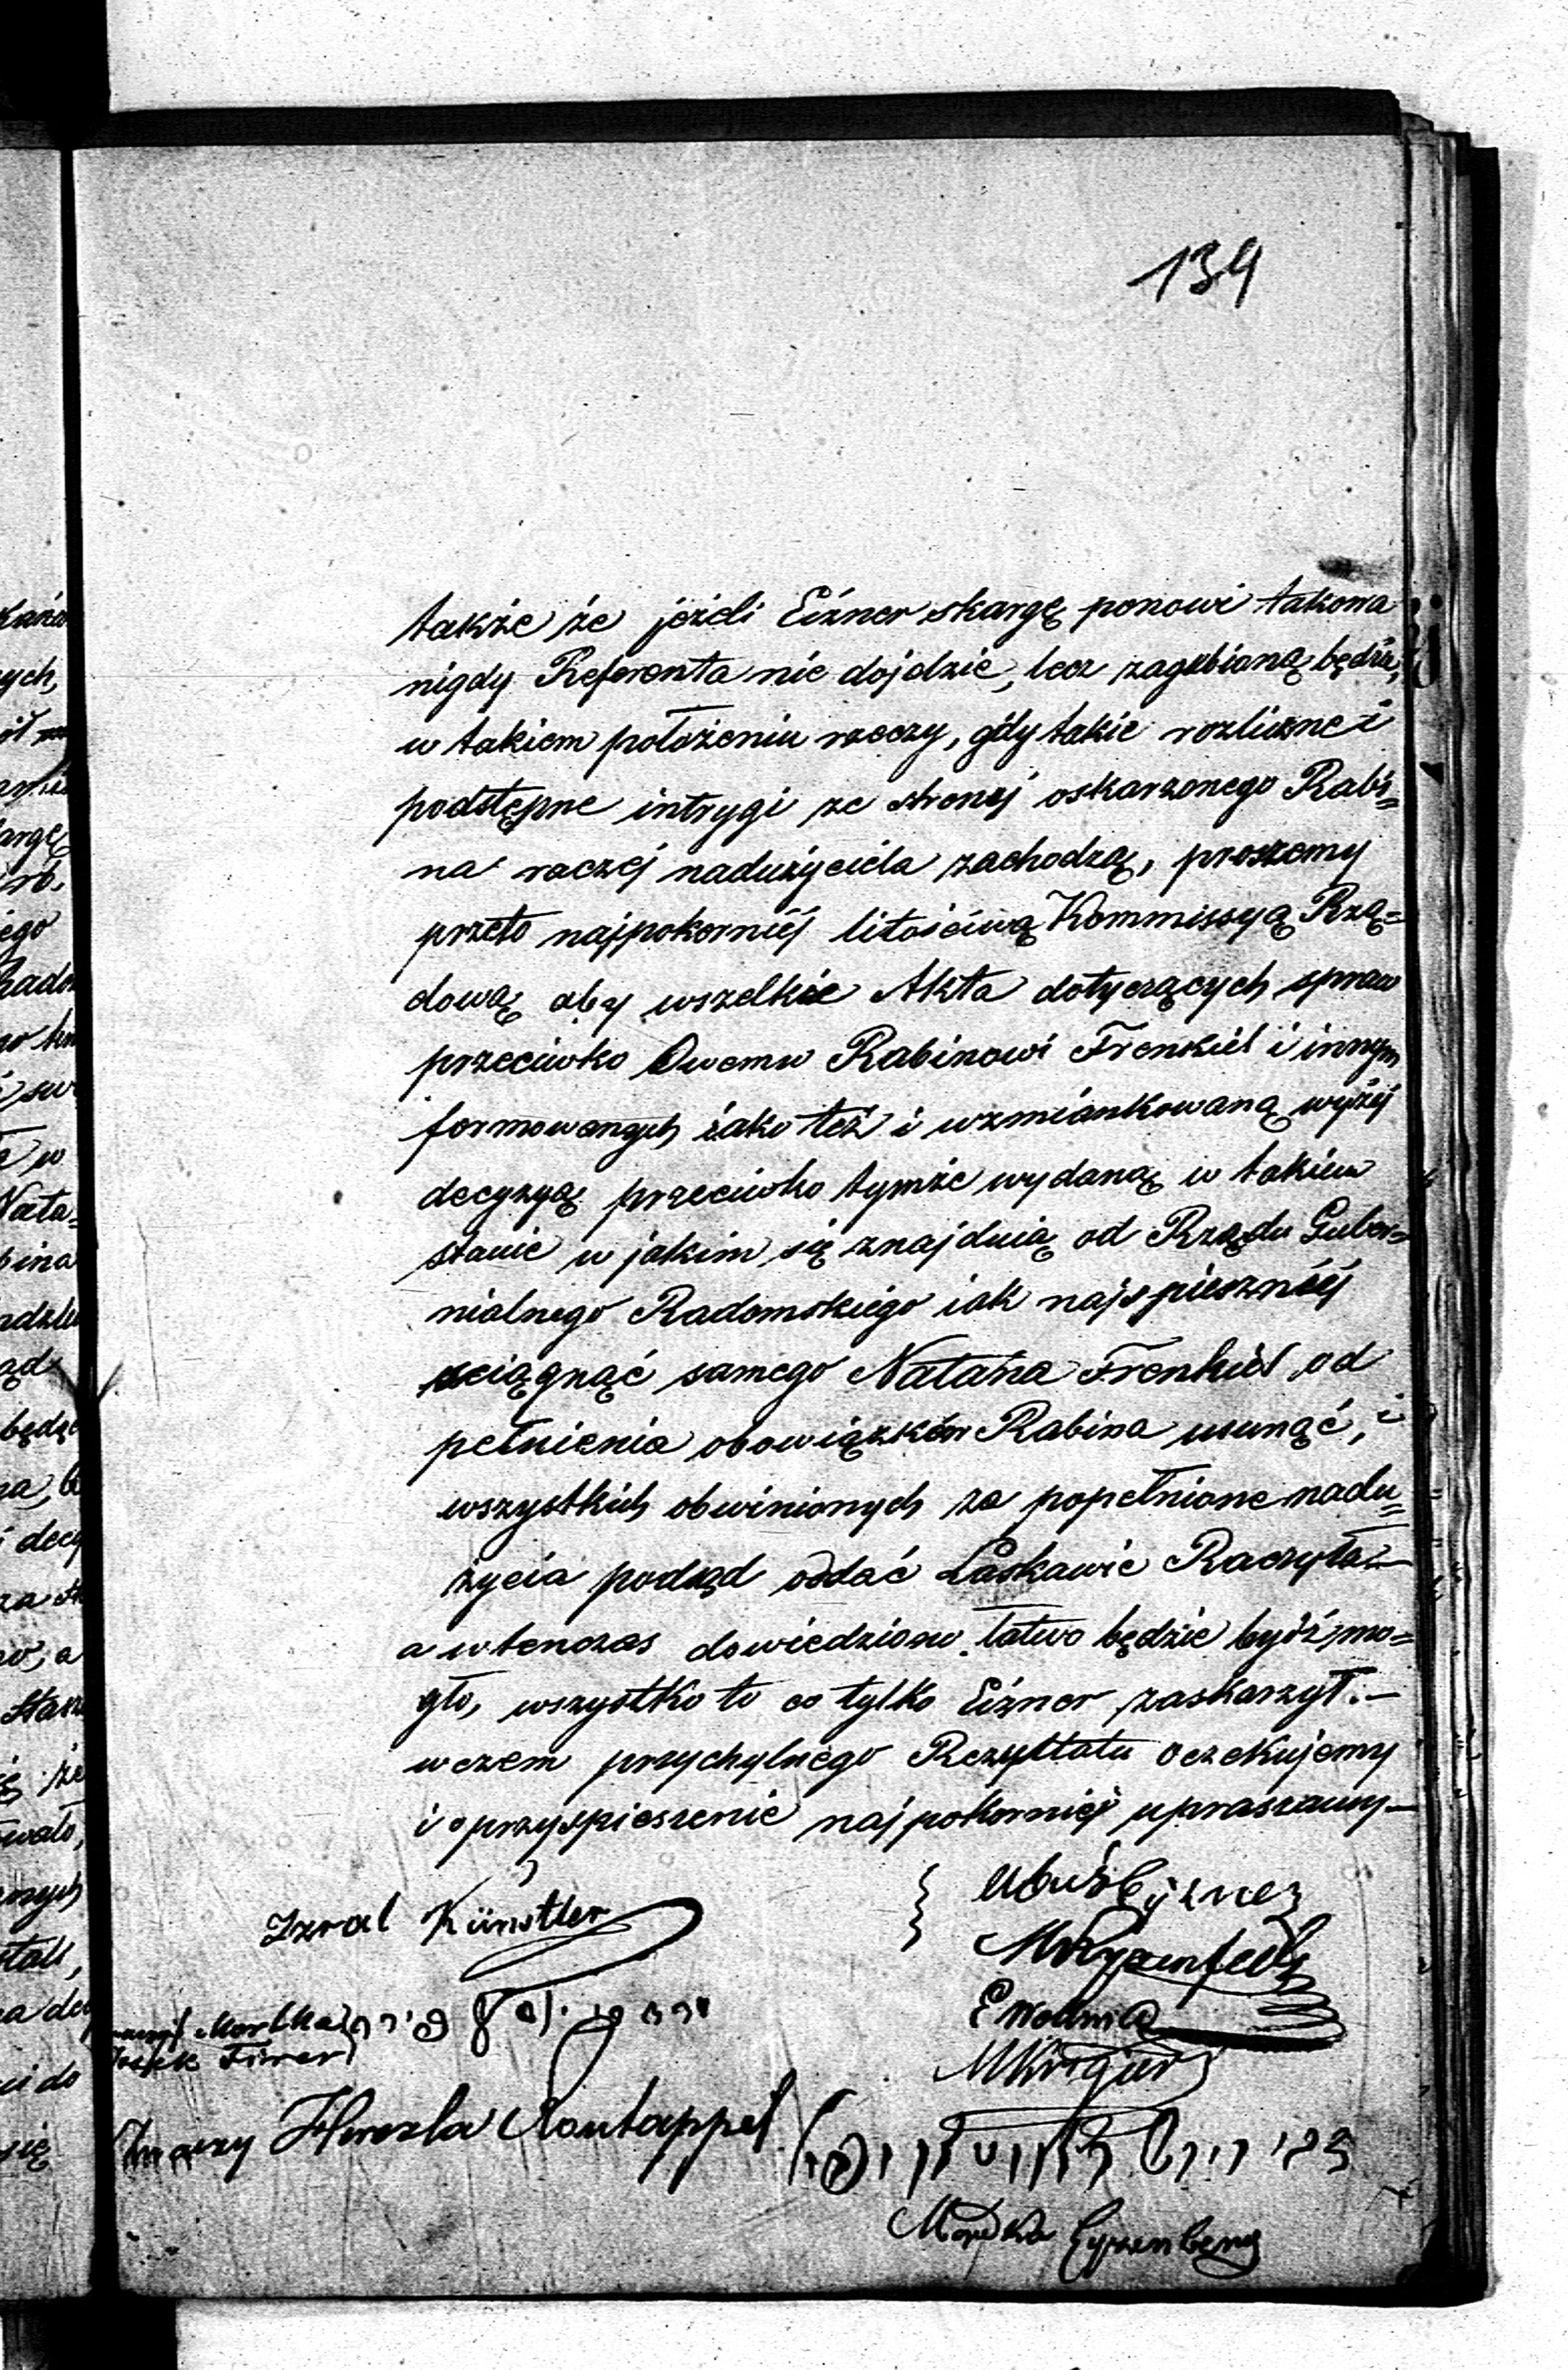 139
także że jeżeli Eizner skargę ponowi takowa
nigdy Referenta nie dojdzie, lecz zagubioną będzie,
w takiem położeniu rzeczy, gdy takie rozliczne i
podstępne intrygi ze stronej oskarżonego Rabi=
na raczej nadużyciela zachodzą, proszemy
przeto najpokorniej litościwą Kommissyą Rzą=
dową aby wszelkie Akta dotyczących spraw
przeciwko Owemu Rabinowi Frenkiel i innym
formowanych iako też i wzmiankowaną wyżej
decyzyą przeciwko tymże wydaną w takim
stanie w jakim się znajdują od Rządu Guber=
nialnego Radomskiego iak najspieszniej
sciągnąć samego Natana Frenkiel od
pełnienia obowiązków Rabina usunąć, i
wszystkich obwinionych za popełnione nadu=
życia podsąd oddać Łaskawie Raczyła.—
a wtenczas dowiedziono łatwo będzie bydź mo=
gło, wszystko to co tylko Eizner zaskarzył.—
wczem przychylnego Rezultatu oczekujemy
i o przyspieszenie najpokorniej upraszamy—
Izral Künstler
Mortka
Josek Firer
E Wodnic
M Krygier
Znaczy Herszla Rontappel
Mordka Eyzenberg